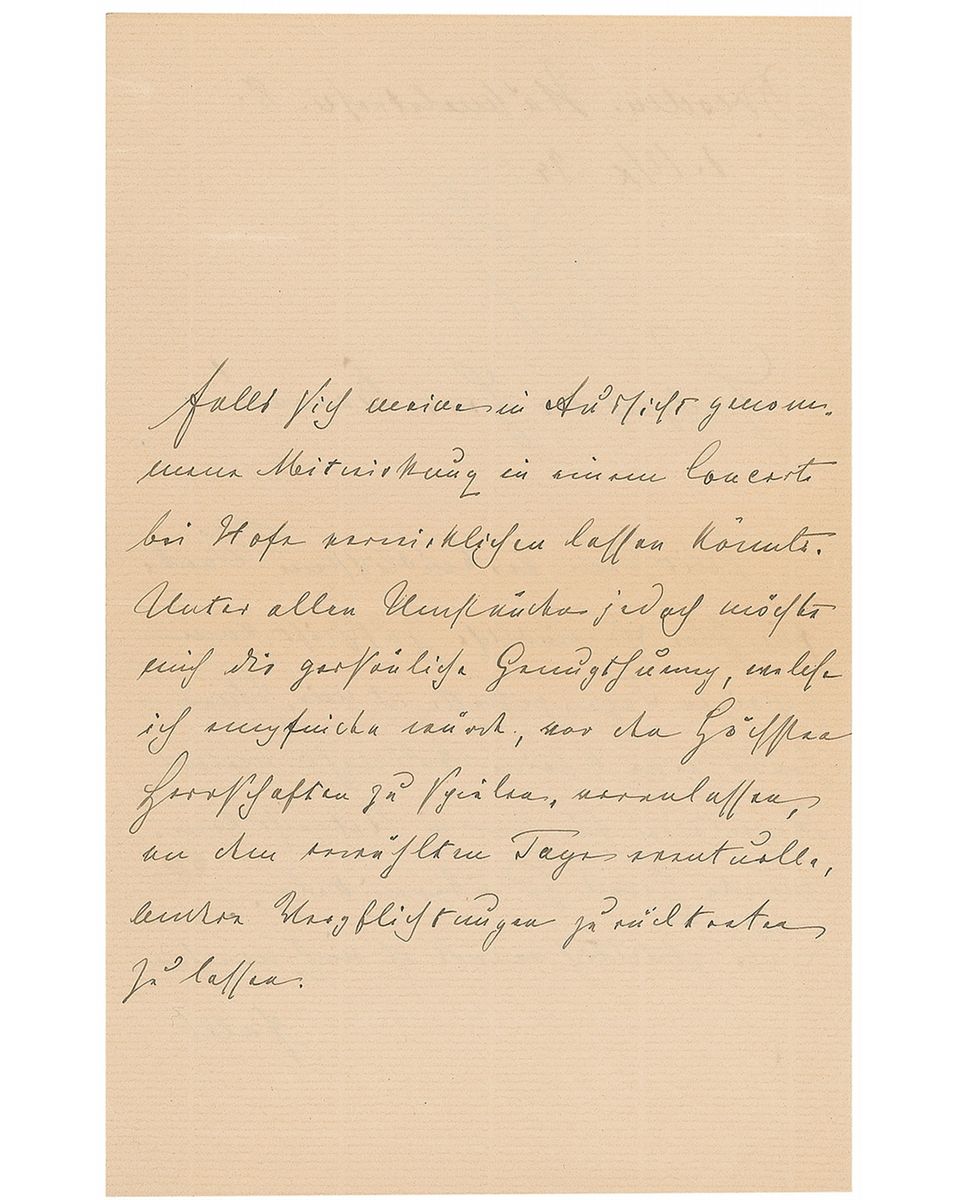 falls sich meine in Aussicht genom-
mene Mitwirkung in einem Concerte
bei Hofe verwirklichen lassen könnte.
Unter allen Umständen jedoch möchte
mich die persönliche Genugthuung, welche
ich empfinden würde, vor den Höchsten
Herrschaften zu spielen, veranlassen,
an dem erwählten Tage eventuelle,
andere Verpflichtungen zurücktreten
zu lassen.